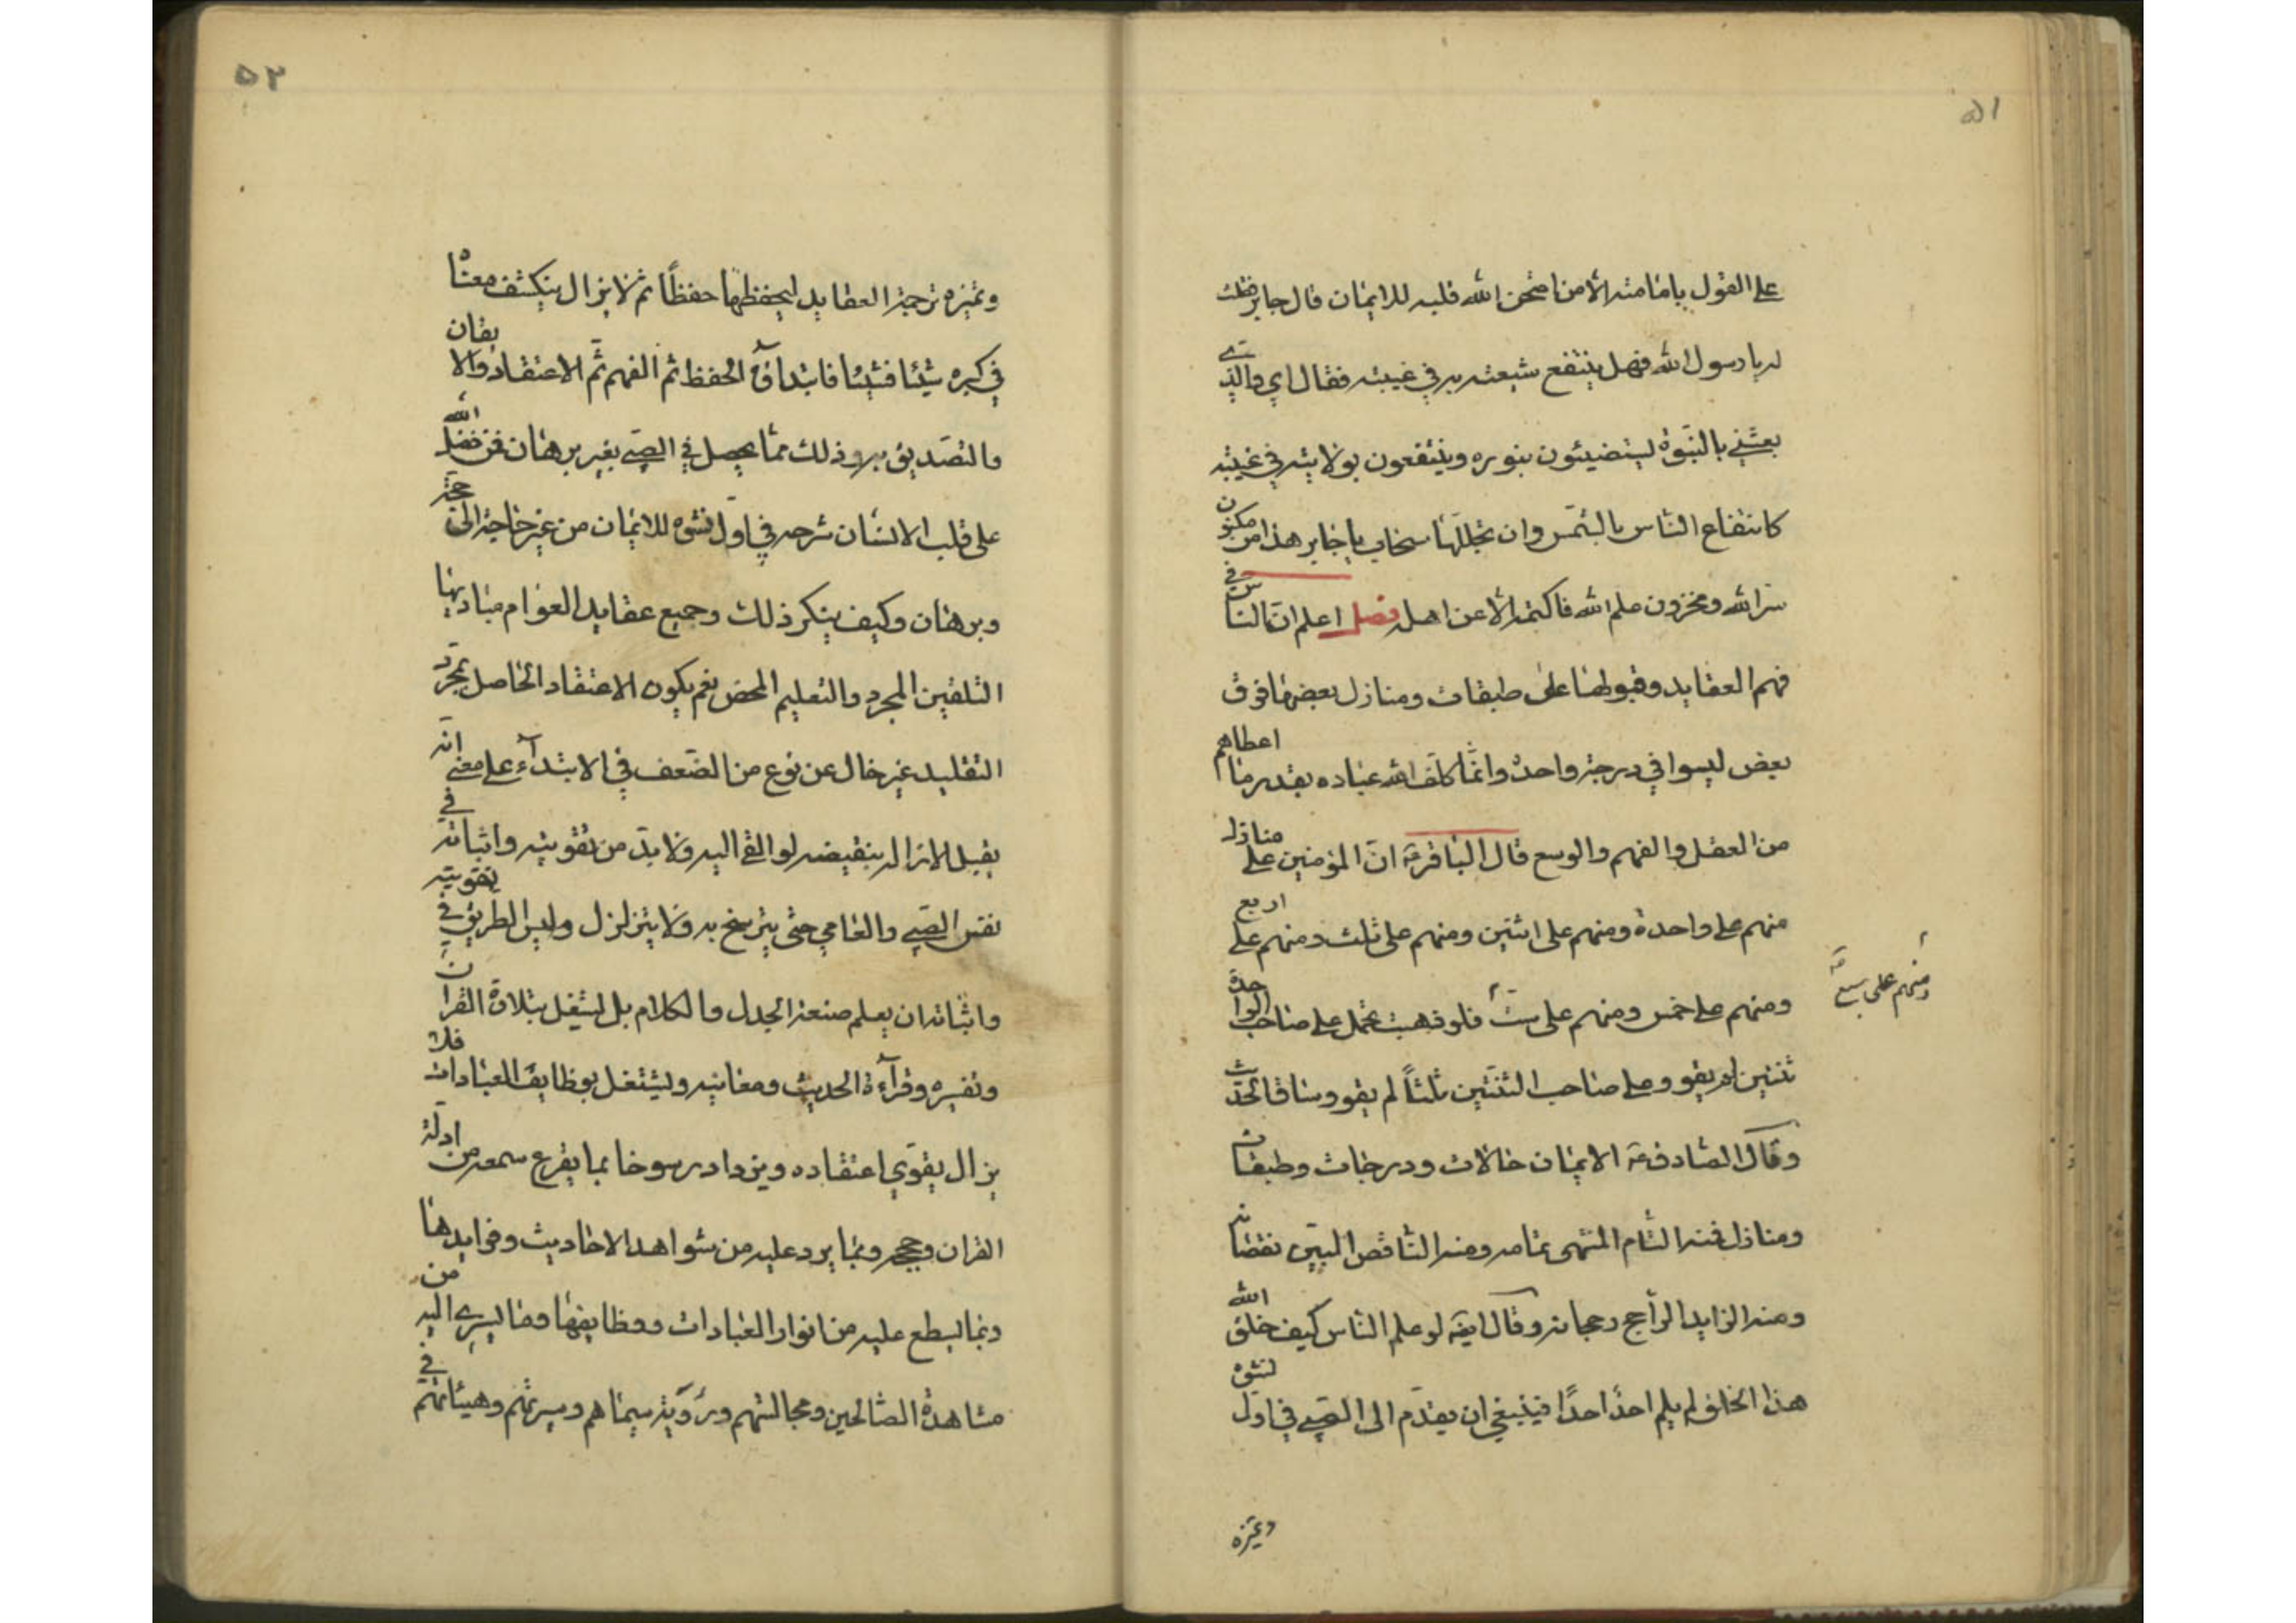 ٥١
على القول بامامته الا من امتحن الله قلبه للايمان قال جابر فقلت
له يا رسول الله فهل ينتفع شيعته به في غيبته فقال اي والذي
بعثني بالنبوة ليستضيئون بنوره وينتفعون بولايته في غيبته
كانتفاع الناس بالشمس وان تجللها سحاب يا جابر هذا من مكنون
سر الله ومخزون علم الله فاكتمه الا عن اهله فصل اعلم ان الناس في
فهم العقايد وقبولها على طبقات ومنازل بعضها فوق
بعض ليسوا في درجة واحدة وانما كلف الله عباده بقدر ما اعطاهم
من العقل والفهم والوسع قال الباقر ع ان المؤمنين على منازل
منهم على واحدة ومنهم على اثنين ومنهم على ثلث ومنهم على اربع
ومنهم على خمس ومنهم على ست فلو ذهبت تحمل على صاحب الواحدة
ومنهم على سبع
ثنتين لم يقو وعلى صاحب الثنتين ثلثاً لم يقو وساق الحديث
وقال الصادق ع الايمان حالات ودرجات وطبقات
ومنازل فمنه التام المنتهى تمامه ومنه الناقص البين نقصانه
ومنه الزايد الراجح رجحانه وقال ايضا لو علم الناس كيف خلق الله
هذا الخلق لم يلم احدٌ احدًا فينبغي ان يقدم الى الصبي في اول نشوه
وتميزه
٥٢
وتميزه ترجمة العقايد ليحفظها حفظاً ثم لا يزال ينكشف معناه
في كبره شيئا فشيئا فابتداؤه الحفظ ثم الفهم ثم الاعتقاد والايقان
والتصديق به وذلك مما يحصل في الصبي بغير برهان فمن فضل الله
على قلب الانسان شرحه في اول نشوه للايمان من غير حاجة الى حجة
وبرهان وكيف ينكر ذلك وجميع عقايد العوام مباديها
التلقين المجرد والتعليم المحض نعم يكون الاعتقاد الحاصل بمجرد
التقليد غير خال عن نوع من الضعف في الابتداء على معنى انه
يقبل الازالة بنقيضه لو القي اليه ولا بد من تقويته واثباته في
نفس الصبي والعامي حتى يترسخ به ولا يتزلزل وليس الطريق في تقويته
واثباته ان يعلم صنعة الجدل والكلام بل يشتغل بتلاوة القران
وتفسيره وقرآءة الحديث ومعانيه ويشتغل بوظايف العبادات فلا
يزال يقوي اعتقاده ويزداد رسوخا بما يقرع سمعه من ادلة
القران وحججه وبما يرد عليه من شواهد الاحاديث وفوايدها
وبما يسطع عليه من انوار العبادات ووظايفها وما يسري اليه من
مشاهدة الصالحين ومجالستهم ورؤية سيماهم وسيرتهم وهيئاتهم في